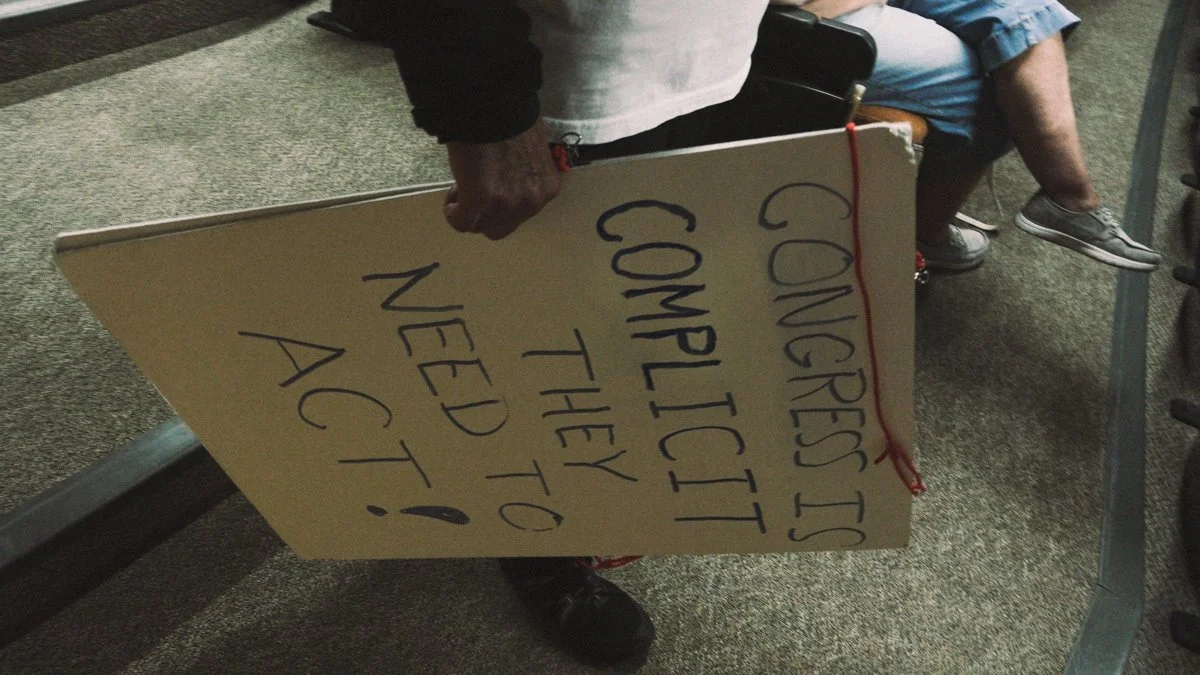 CONGRESS IS
COMPLICIT
THEY
NEED TO
ACT!